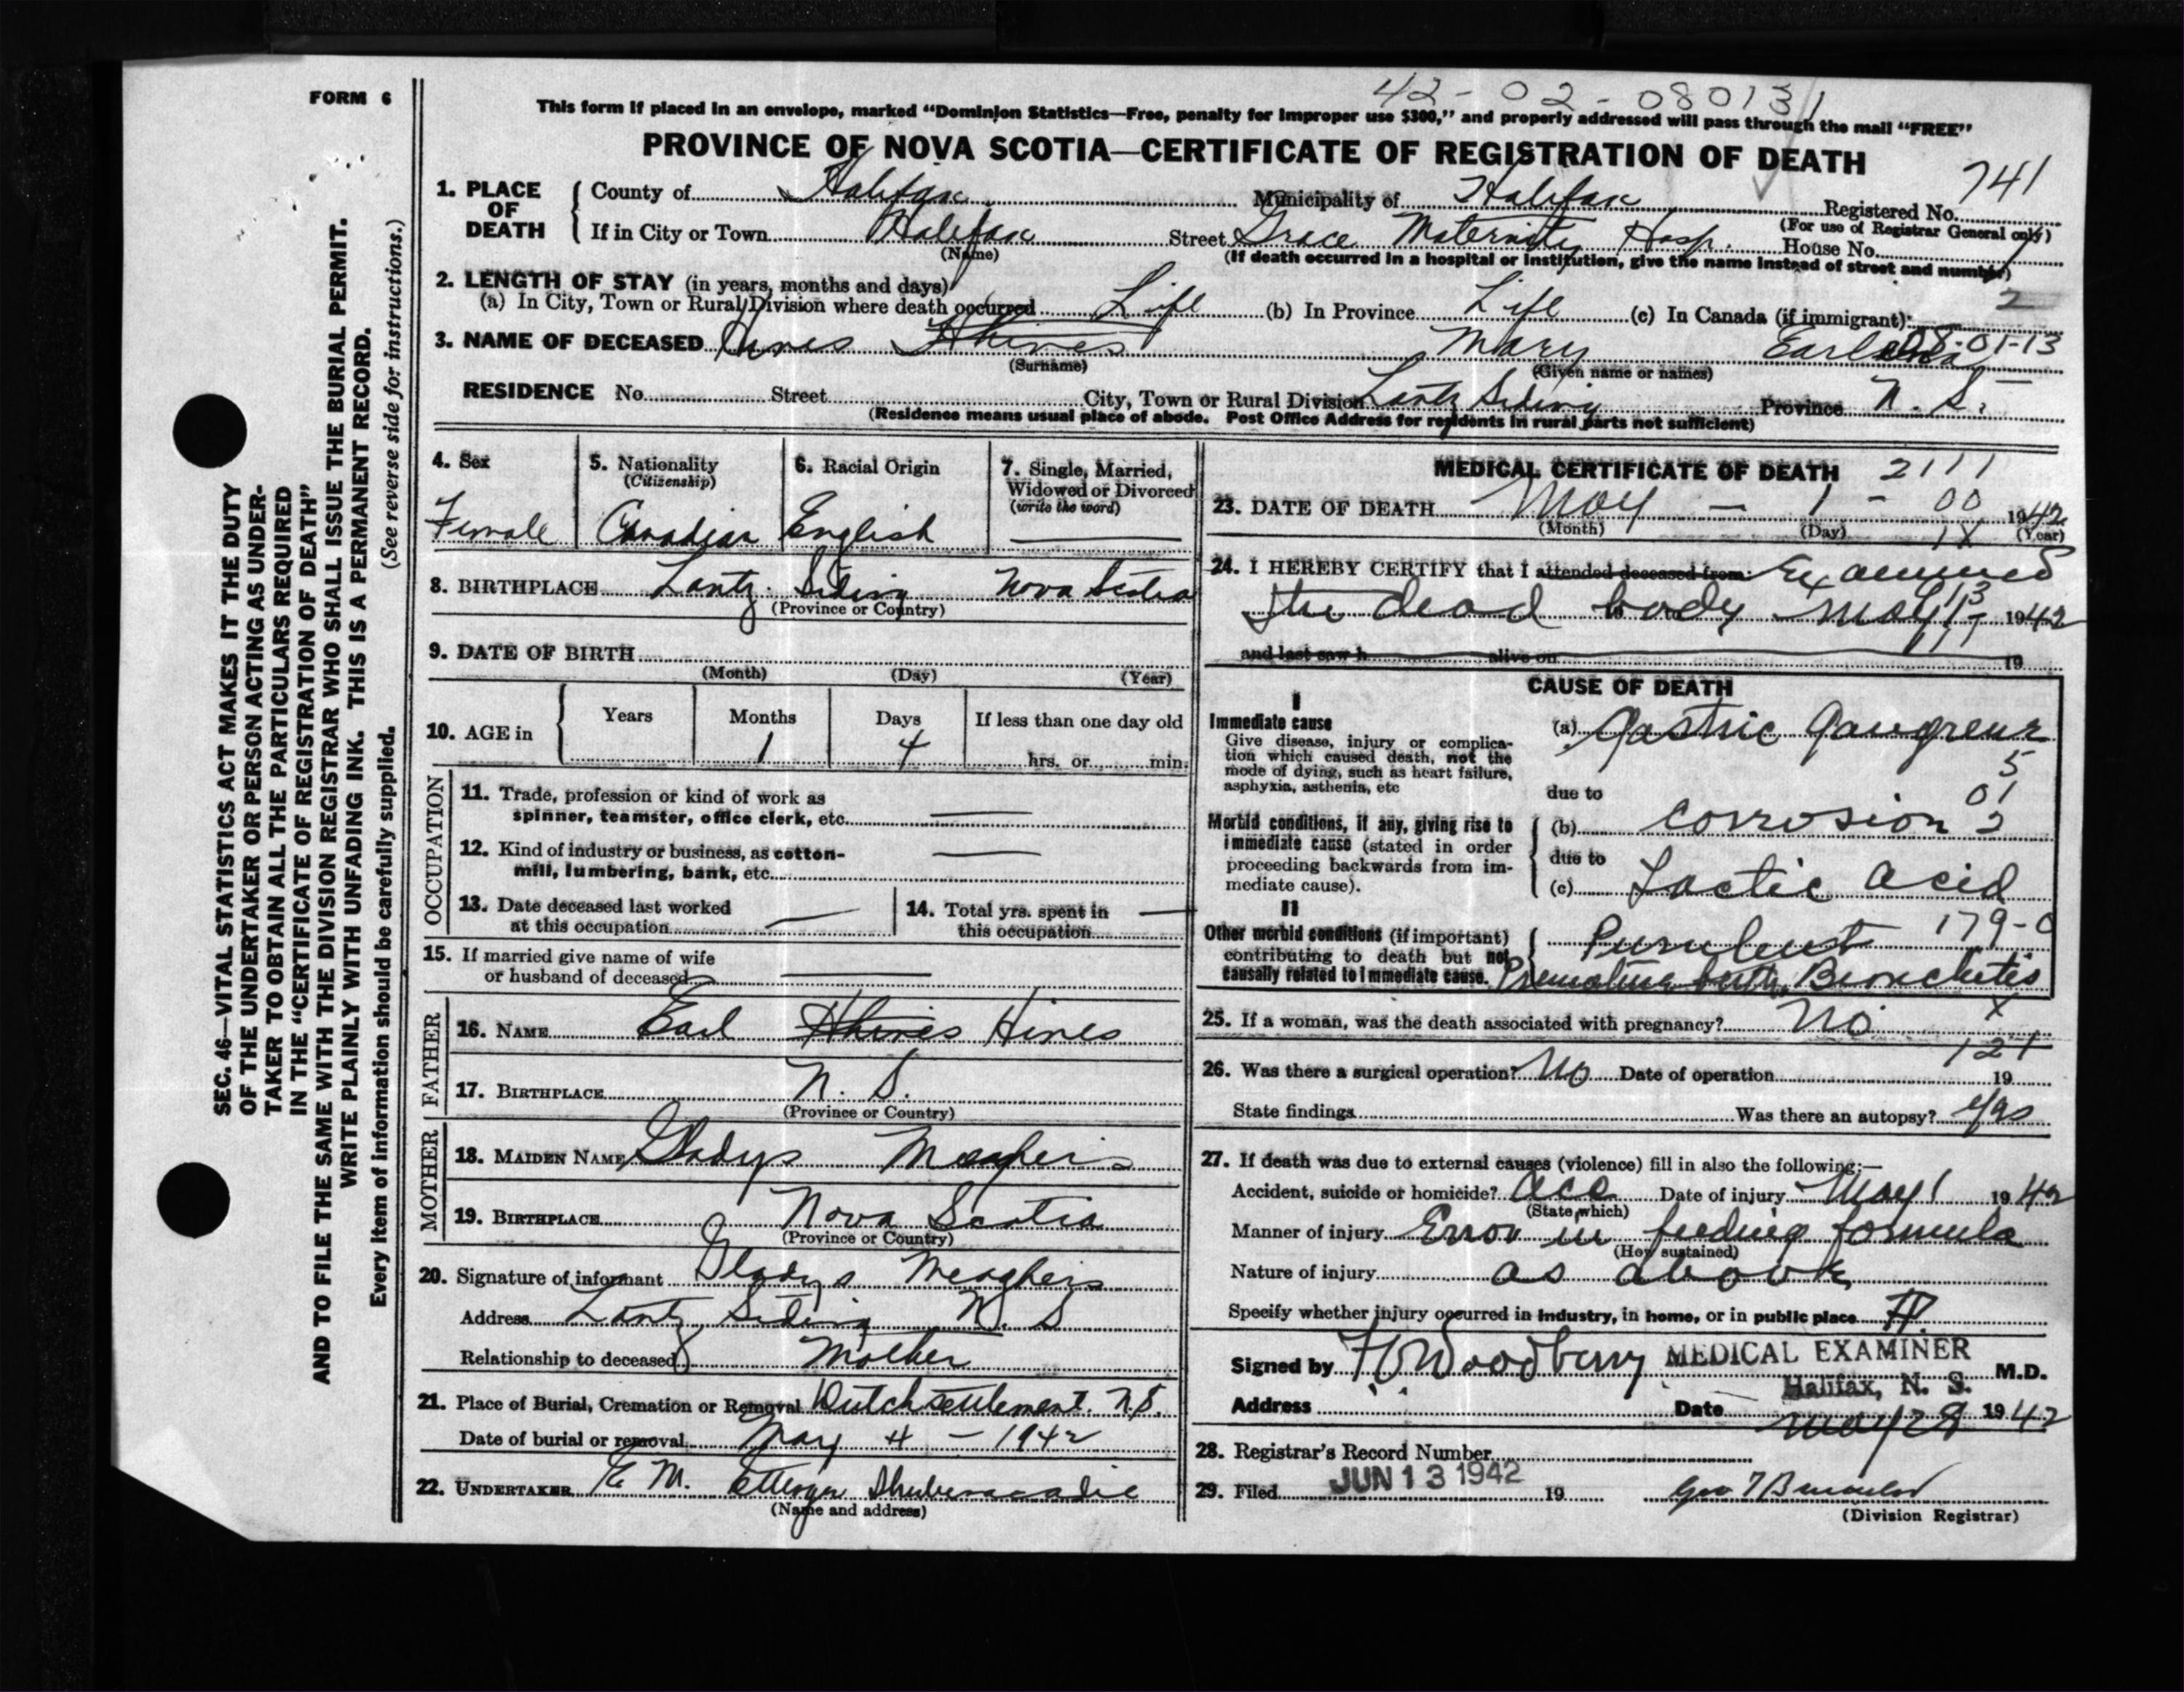 FORM 6
42-02-080131
This form if placed in an envelope, marked "Dominion Statistics—Free, penalty for improper use $300," and properly addressed will pass through the mail "FREE"
PROVINCE OF NOVA SCOTIA—CERTIFICATE OF REGISTRATION OF DEATH
741
1. PLACE OF DEATH
County of Halifax Municipality of Halifax Registered No.
(For use of Registrar General only)
If in City or Town Halifax Street Grace Maternity Hosp. House No.
(Name) (If death occurred in a hospital or institution, give the name instead of street and number)
2. LENGTH OF STAY (in years, months and days)
(a) In City, Town or Rural Division where death occurred Life (b) In Province Life (c) In Canada (if immigrant): 2
3. NAME OF DECEASED Hines Hhines Mary 08-01-13
(Surname) (Given name or names)
RESIDENCE No. Street City, Town or Rural Division Lantz Siding Province N. S.
(Residence means usual place of abode. Post Office Address for residents in rural parts not sufficient)
4. Sex
Female
5. Nationality
(Citizenship)
Canadian
6. Racial Origin
English
7. Single, Married, Widowed or Divorced
(write the word)
8. BIRTHPLACE Lantz Siding Nova Scotia
(Province or Country)
9. DATE OF BIRTH
(Month) (Day) (Year)
10. AGE in
Years Months Days If less than one day old
1 4 hrs. or min.
OCCUPATION
11. Trade, profession or kind of work as
spinner, teamster, office clerk, etc.
12. Kind of industry or business, as cotton-
mill, lumbering, bank, etc.
13. Date deceased last worked
at this occupation
14. Total yrs. spent in
this occupation
15. If married give name of wife
or husband of deceased
FATHER
16. NAME Earl Hhines Hines
17. BIRTHPLACE N. S.
(Province or Country)
MOTHER
18. MAIDEN NAME Gladys Meaghers
19. BIRTHPLACE Nova Scotia
(Province or Country)
20. Signature of informant Gladys Meaghers
Address Lantz Siding N. S
Relationship to deceased Mother
21. Place of Burial, Cremation or Removal Dutch settlement. N.S.
Date of burial or removal May 4 - 1942
22. UNDERTAKER E M. Ettinger Shubenacadie
(Name and address)
MEDICAL CERTIFICATE OF DEATH 2111
23. DATE OF DEATH May - 1 - 00 1942
(Month) (Day) 1X (Year)
24. I HEREBY CERTIFY that I attended deceased from: Examined
the dead body May 1 - 1942
and last saw h alive on 19
CAUSE OF DEATH
I
Immediate cause
Give disease, injury or complica-
tion which caused death, not the
mode of dying, such as heart failure,
asphyxia, asthenia, etc
(a) Gastric Gangrene
5
01
2
due to
Morbid conditions, if any, giving rise to
immediate cause (stated in order
proceeding backwards from im-
mediate cause).
(b) corrosion
due to
(c) Lactic acid
II
Other morbid conditions (if important)
contributing to death but not
causally related to immediate cause.
Purulent 179-0
Premature birth, Bronchitis
25. If a woman, was the death associated with pregnancy? No X
121
26. Was there a surgical operation? No Date of operation 19
State findings Was there an autopsy? yes
27. If death was due to external causes (violence) fill in also the following:—
Accident, suicide or homicide? acc Date of injury May 1 1942
(State which)
Manner of injury Error in feeding formula
(How sustained)
Nature of injury as above
Specify whether injury occurred in industry, in home, or in public place
Signed by Woodbery MEDICAL EXAMINER M.D.
Halifax, N. S.
Address Date May 29 1942
28. Registrar's Record Number
29. Filed JUN 13 1942 19
(Division Registrar)
SEC. 46—VITAL STATISTICS ACT MAKES IT THE DUTY
OF THE UNDERTAKER OR PERSON ACTING AS UNDER-
TAKER TO OBTAIN ALL THE PARTICULARS REQUIRED
IN THE "CERTIFICATE OF REGISTRATION OF DEATH"
AND TO FILE THE SAME WITH THE DIVISION REGISTRAR WHO SHALL ISSUE THE BURIAL PERMIT.
WRITE PLAINLY WITH UNFADING INK. THIS IS A PERMANENT RECORD.
Every item of information should be carefully supplied. (See reverse side for instructions.)